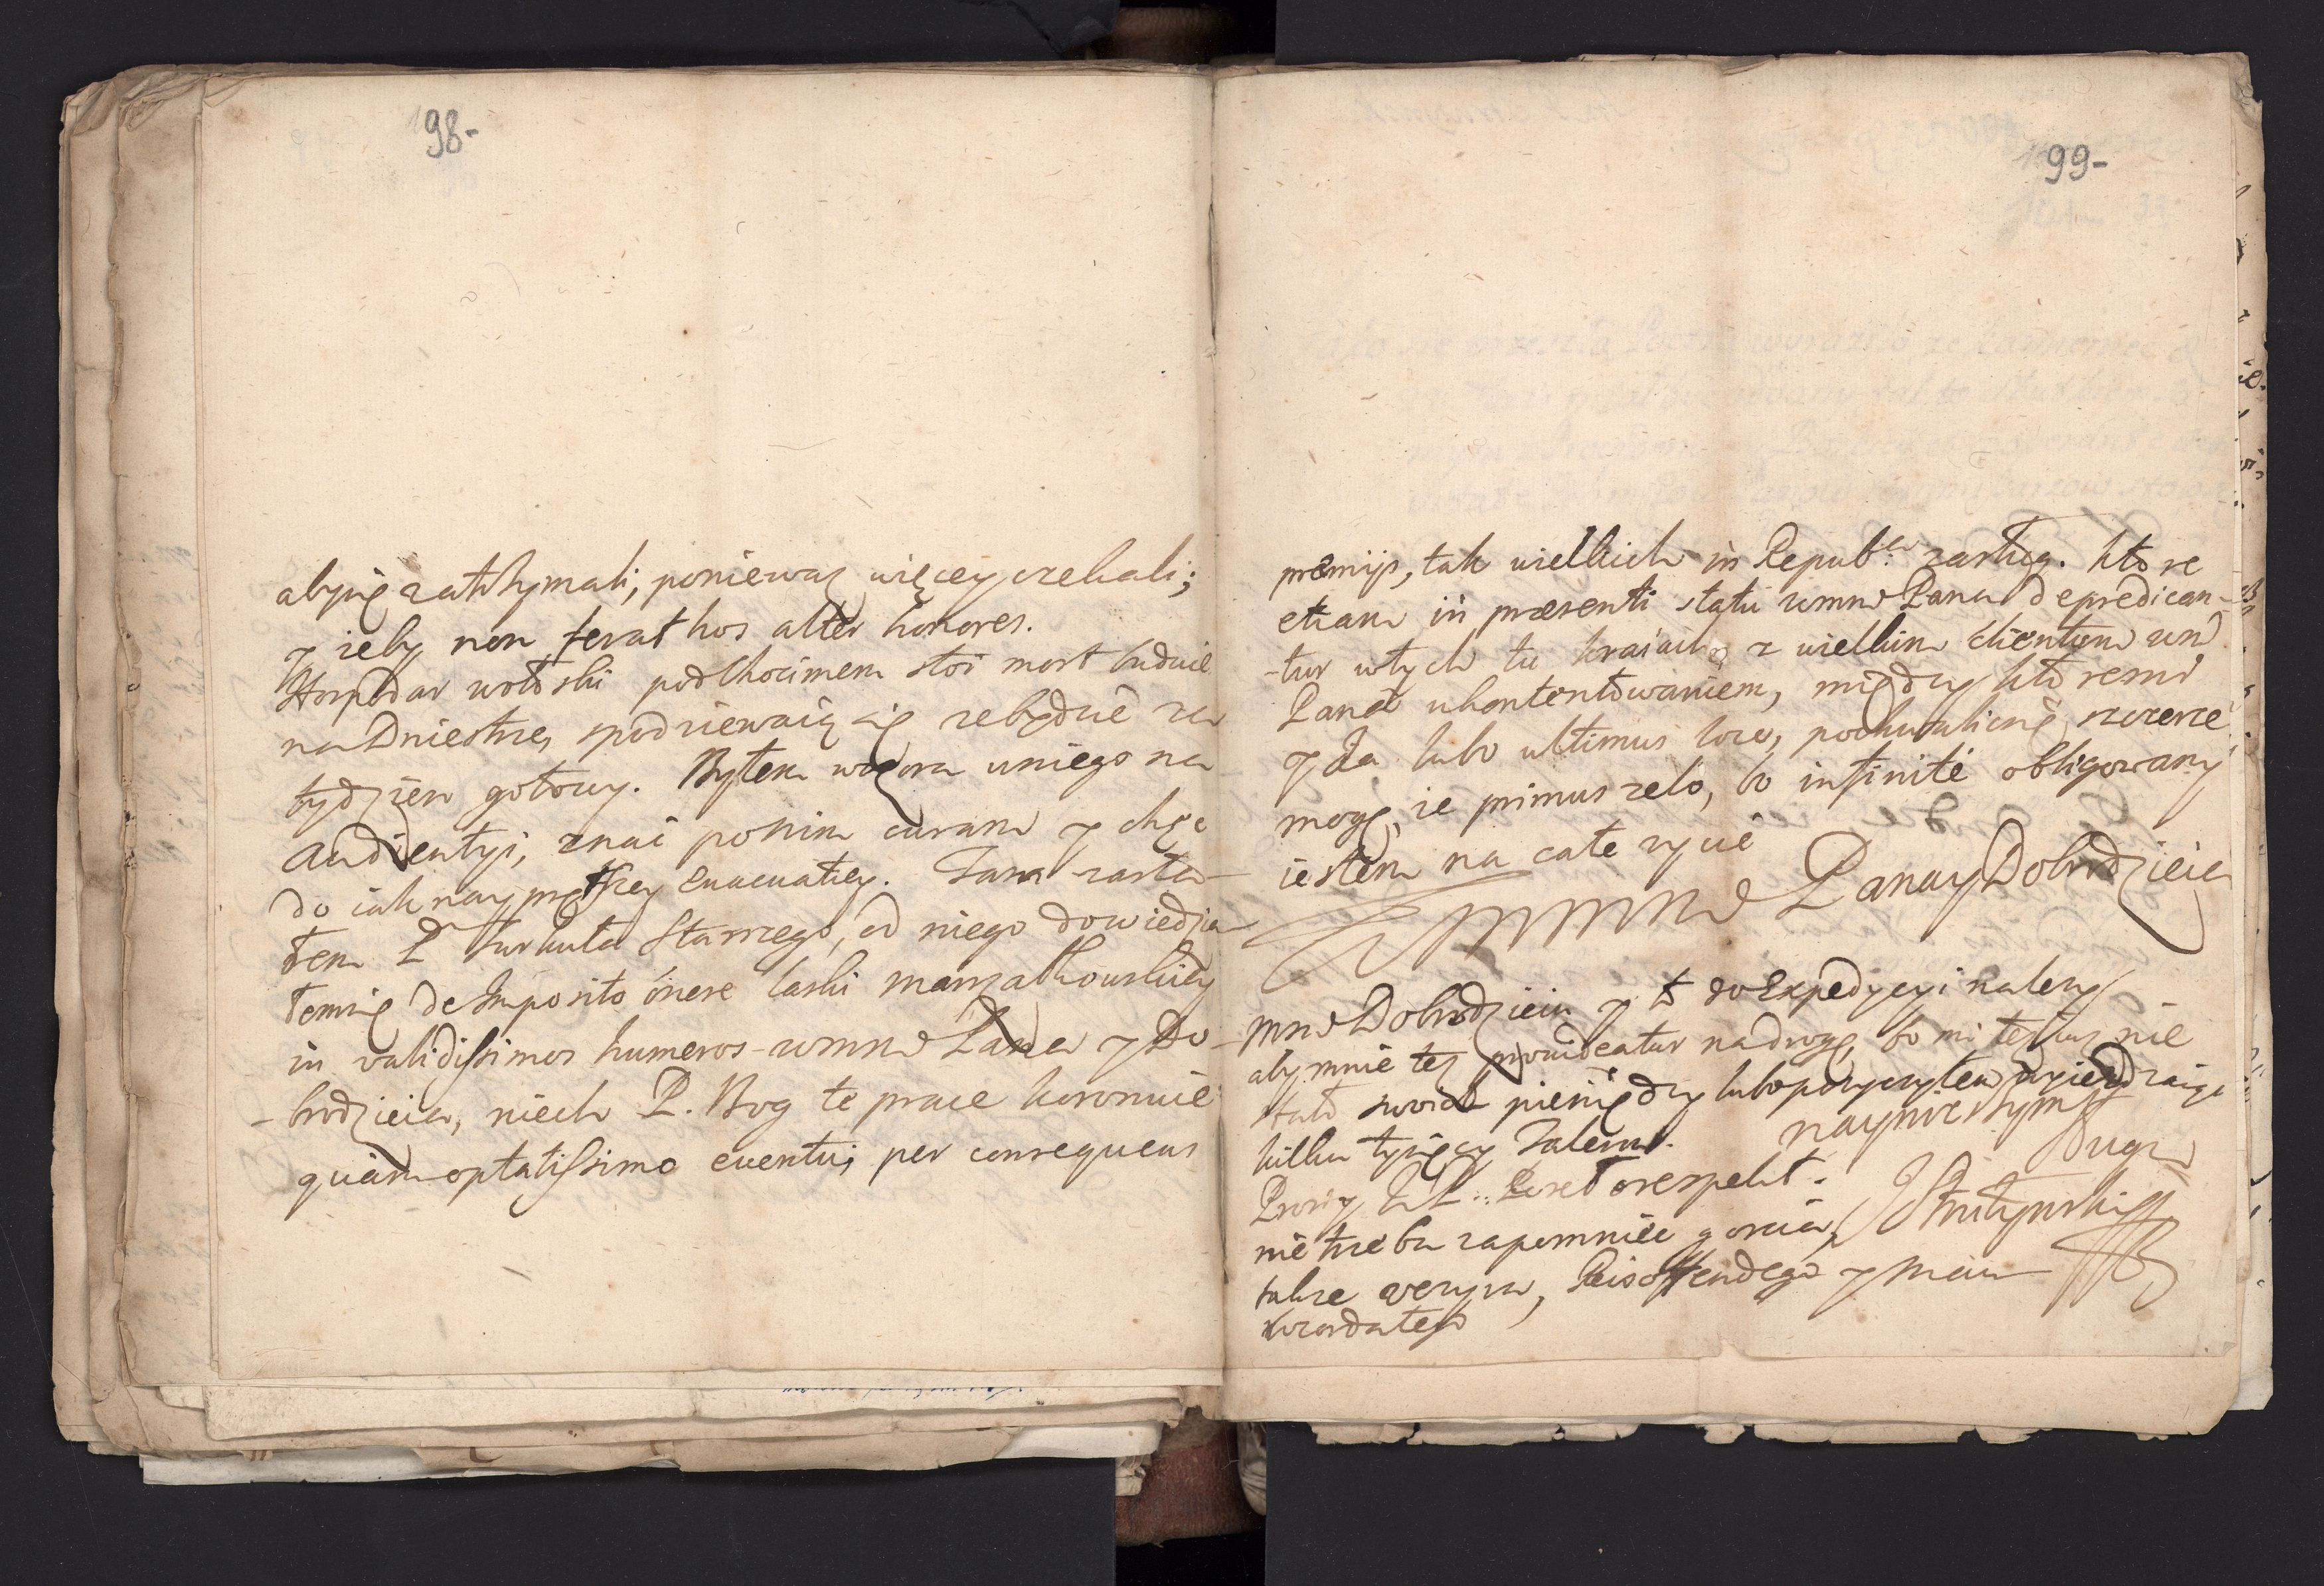 98-
abysię zatrzymali, poniewaz więcey czekali;
y zeby non ferat hos alter honores.
Hospodar wołoski pod Chocimem stoi most buduie
na Dniestrze, spodziewaią się ze będzie za
tydzien gotowy. Byłem wczora u niego na
Audientyi, znać po nim curam y chęć
do iak nayprętszey Evacuatiey. Tam zasta-
łem P Turkuła Starszego, od niego dowiedzia
łemsię de Imposito onere laski marszałkowskiey
in validissimos humeros wmm Pana y Do-
-brodzieia, niech P. Bog te prace koronuie
quam optatissimo eventu; per consequens
99-
premijs, tak wielkich in Republ. zasług. ktore
etiam in præsenti statu wmm Pana depredican-
-tur w tych tu kraiach, z wielkim clientum wm
Pana ukontentowaniem, między ktoremi
y Ja lubo ultimus loco, pochwalicsię szczerze
mogę, ze primus zelo, bo infinite obligowany
iestem na całe zycie
Wmm Pana y Dobrodzieia
mm Dobrodzieiu y to do Expedycyi nalezy
aby mnie tez provideatur na drogę, bo mi tesz iusz nie
stało swoich pieniędzy lubo pozyczyłem wyiezdzaiąc
kilku tysięcy Talerow. nayniszszym
Sługą
Proszę o respekt.
JStrutynski
nie trzeba zapomniec gonca,
takze, y